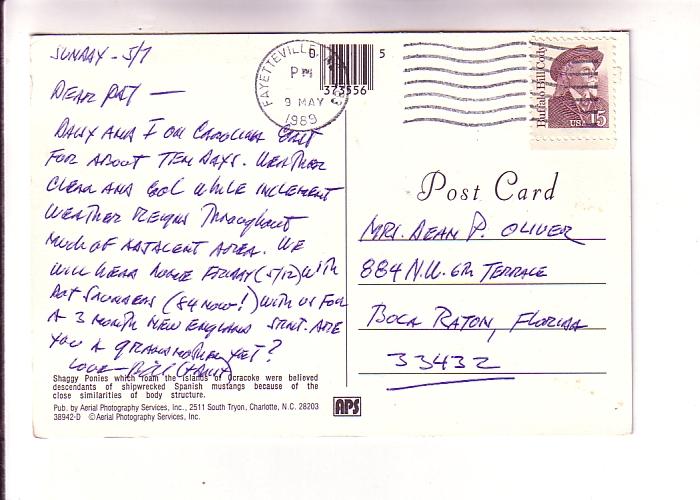 SUNDAY - 5/7
DEAR PAT —
DAUX AND I ON CAROLINA COAST
FOR ABOUT TEN DAYS. WEATHER
CLEAR AND COOL WHILE INCLEMENT
WEATHER REIGNS THROUGHOUT
MUCH OF ADJACENT AREA. WE
WILL HEAD HOME FRIDAY (5/12) WITH
DOT SAUNDERS (84 NOW!) WITH US FOR
A 3 MONTH NEW ENGLAND STINT. ARE
YOU A GRANDMOTHER YET?
LOVE - BILL (+DAUX)
Shaggy Ponies which roam the islands of Ocracoke were believed
descendants of shipwrecked Spanish mustangs because of the
close similarities of body structure.
Pub. by Aerial Photography Services, Inc., 2511 South Tryon, Charlotte, N.C. 28203
38942-D © Aerial Photography Services, Inc.
APS
0 373556 5
FAYETTEVILLE,
PM
9 MAY
1989
Buffalo Bill Cody
USA 15
Post Card
MRS. DEAN P. OLIVER
884 N.W. 6TH TERRACE
BOCA RATON, FLORIDA
33432